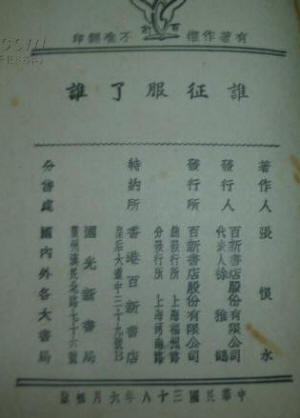 有著作權 不准翻印
誰征服了誰
著作人 張恨水
發行人 百新書店股份有限公司
代表人 徐雅鶴
發行所 百新書店股份有限公司
總發行所 上海福州路
分發行所 上海河南路
特約所 香港百新書店
皇后大道中三十九號
國光新書局
廣州漢民北路七十六號
分售處 國內外各大書局
中華民國三十八年六月